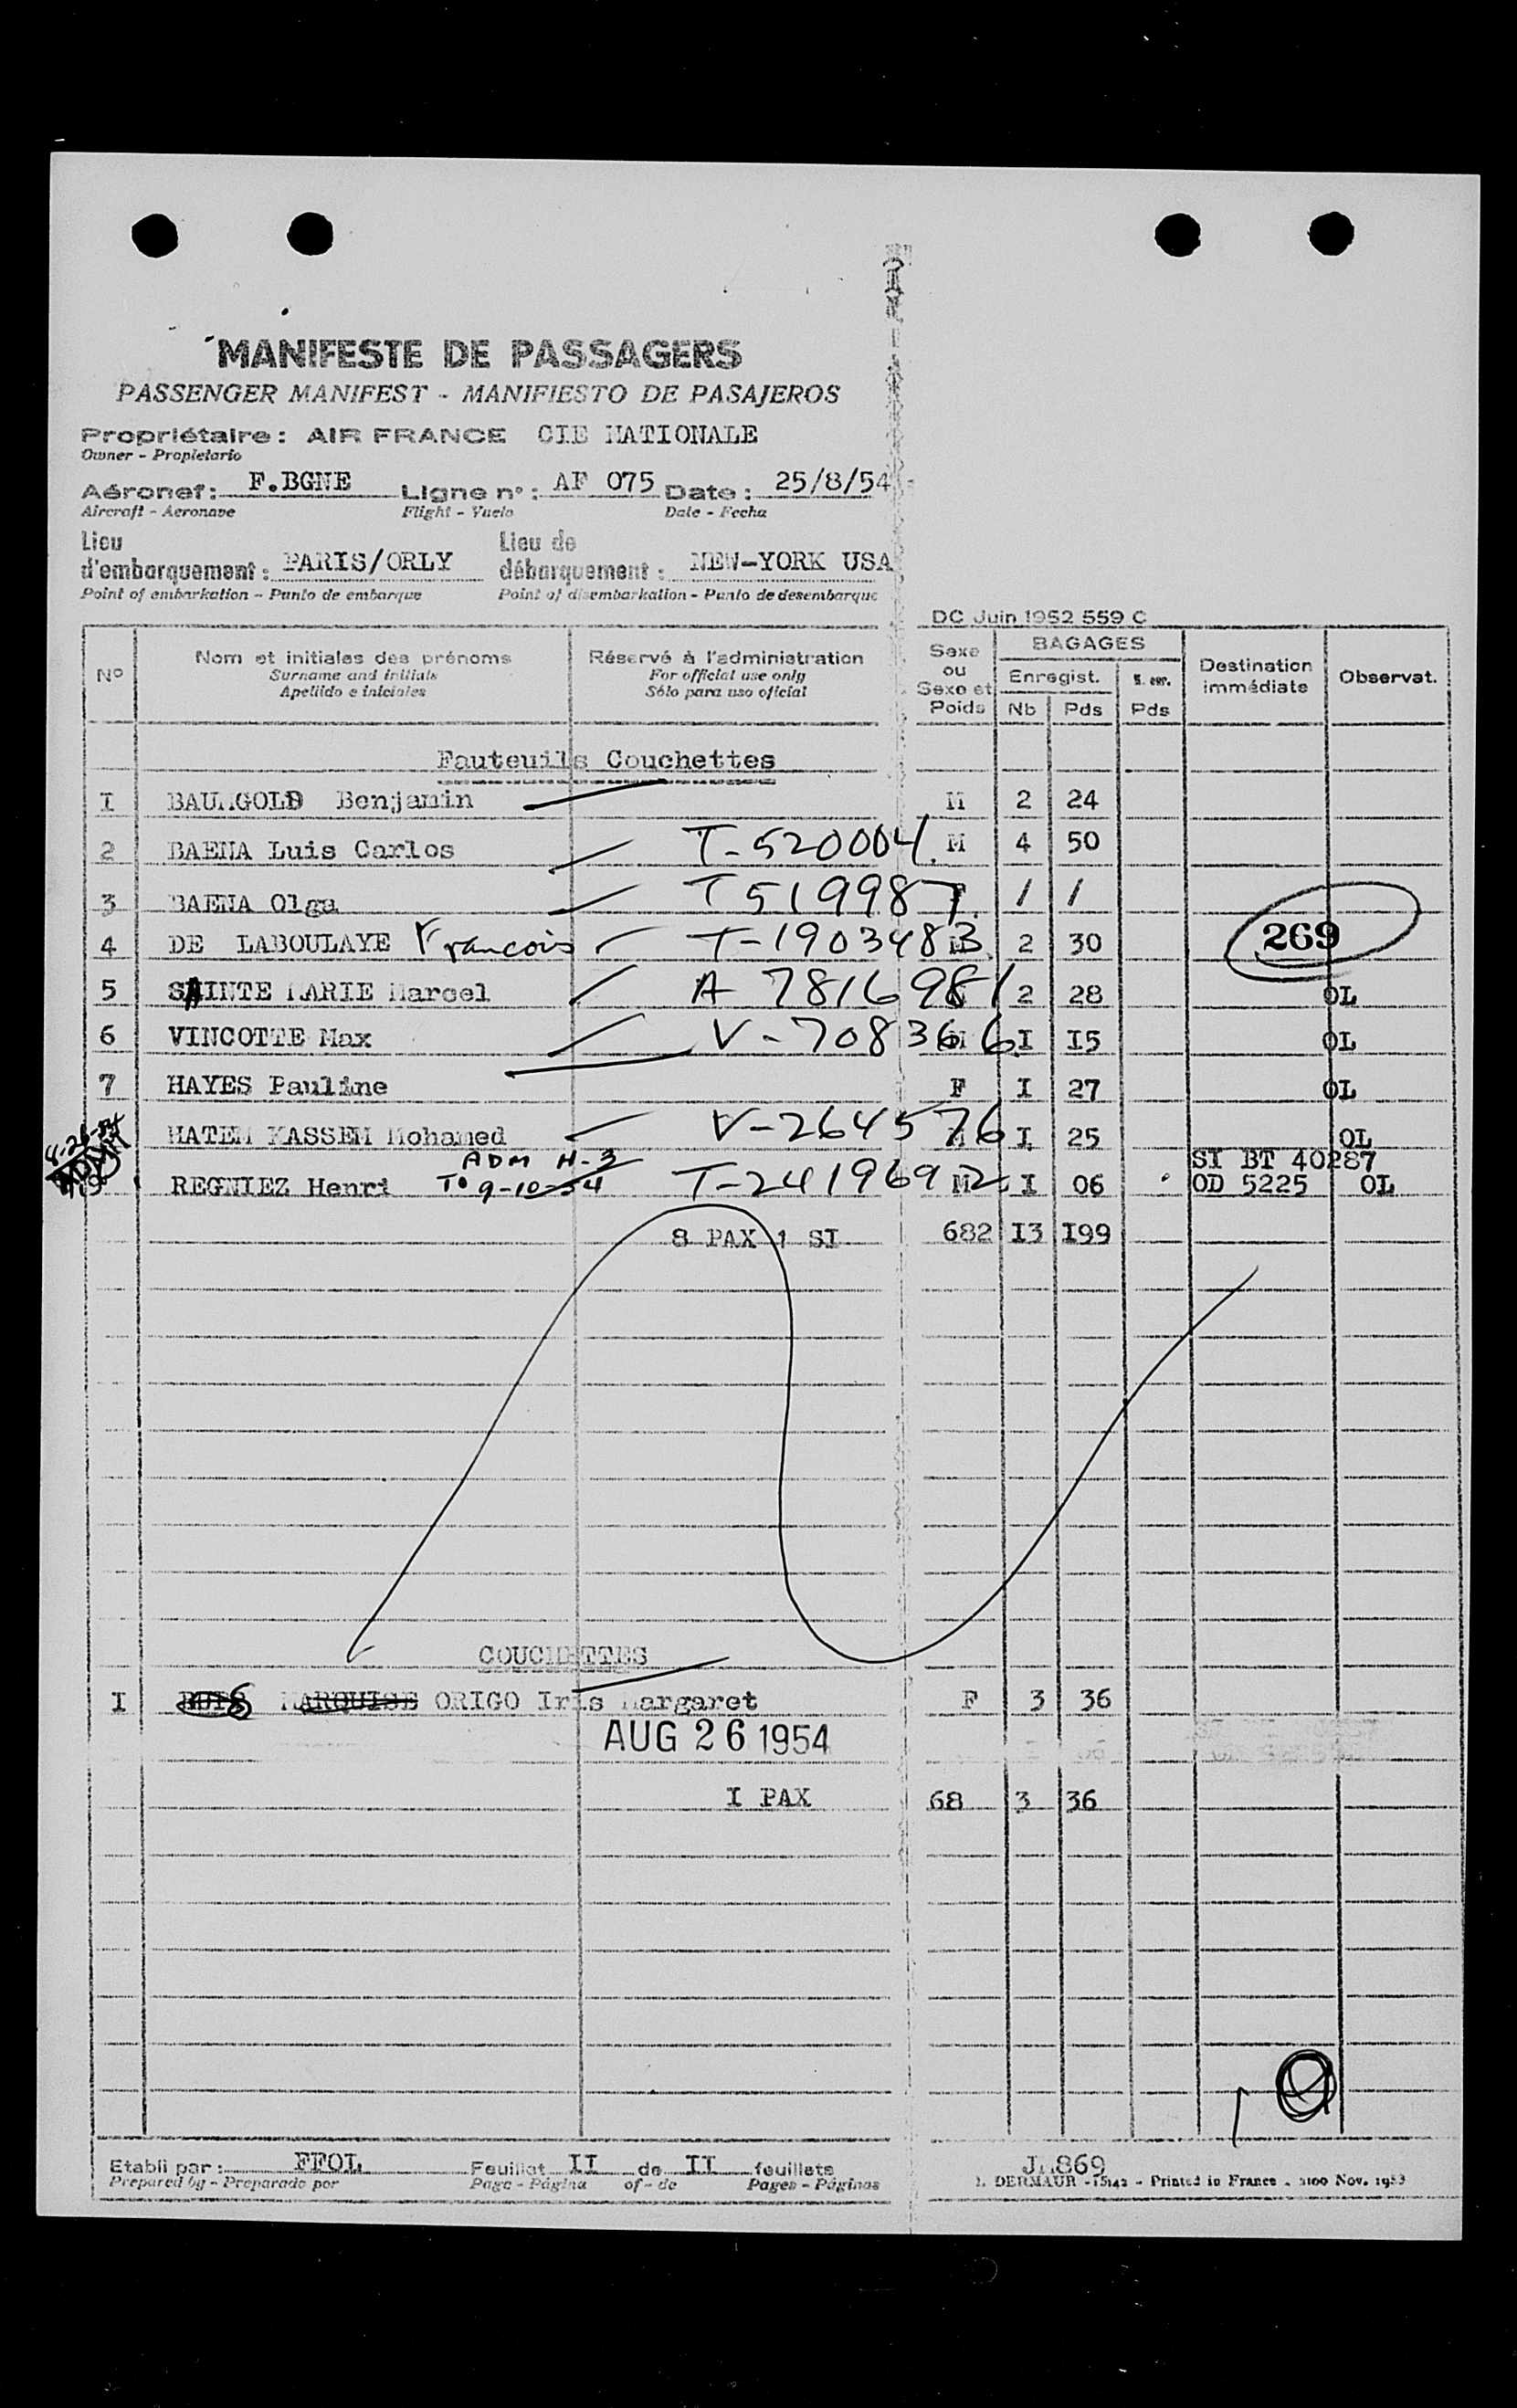 MANIFESTE DE PASSAGERS
PASSENGER MANIFEST - MANIFIESTO DE PASAJEROS
Propriétaire : AIR FRANCE CIE NATIONALE
Owner - Propietario
Aéronef : F.BGNE Ligne n° : AF 075 Date : 25/8/54
Aircraft - Aeronave Flight - Vuelo Date - Fecha
Lieu d'embarquement : PARIS/ORLY Lieu de débarquement : NEW-YORK USA
Point of embarkation - Punto de embarque Point of disembarkation - Punto de desembarque
DC Juin 1952 559 C
N° Nom et initiales des prénoms Réservé à l'administration Sexe ou Sexe et Poids BAGAGES Destination immédiate Observat.
Surname and initials For official use only Enregist. N. enr.
Apellido e iniciales Sólo para uso oficial Nb Pds Pds
Fauteuils Couchettes
I BAUMGOLD Benjamin M 2 24
2 BAENA Luis Carlos T-520004 M 4 50
3 BAENA Olga T519987 / /
4 DE LABOULAYE Francois T-1903483 2 30 269
5 SAINTE MARIE Marcel A 7816981 2 28 OL
6 VINCOTTE Max V-708366 I I5 OL
7 HAYES Pauline F I 27 OL
HATEM KASSEM Mohamed V-264576 I 25 OL
ADM H-3 SI BT 40287
REGNIEZ Henri To 9-10-54 T-2419692 M I 06 OD 5225 OL
8 PAX 1 SI 682 I3 I99
COUCHETTES
I MARQUISE ORIGO Iris Margaret F 3 36
AUG 26 1954
I PAX 68 3 36
Etabli par : FFOL Feuillet II de II feuillets
Prepared by - Preparado por Page - Página of - de Pages - Páginas
L. DERMAUR - 15142 - Printed in France - 2100 Nov. 1953